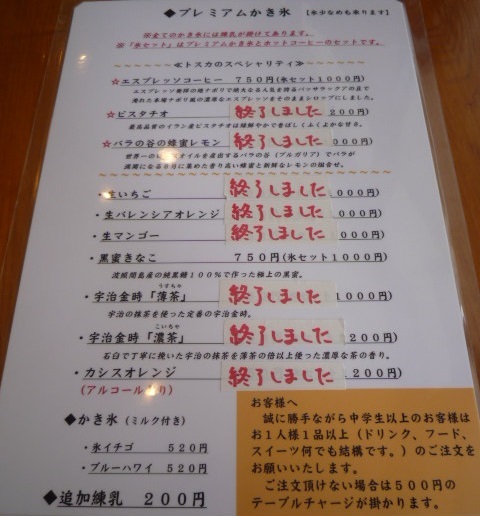 ◆プレミアムかき氷 【氷少なめも承ります】
※全てのかき氷には練乳が掛けてあります。
※「氷セット」はプレミアムかき氷とホットコーヒーのセットです。
≪トスカのスペシャリティ≫
☆エスプレッソコーヒー 750円(氷セット1000円)
エスプレッソ発祥の地ナポリで絶大なる人気を誇るパッサラックアの豆で
淹れた本場ナポリ風の濃厚なエスプレッソをそのままシロップにしました。
☆ピスタチオ 終了しました 200円)
最高品質のイラン産ピスタチオは綺麗やかで香ばしくふくよかな甘さ。
☆バラの谷の蜂蜜レモン 終了しました
世界一のオイルを産出するバラの谷(ブルガリア)でバラが
満開になる時期に集めた香り高い蜂蜜と新鮮なレモンの組合せ。
・生いちご 終了しました 000円)
・生バレンシアオレンジ 終了しました 000円)
・生マンゴー 終了しました 000円)
・黒蜜きなこ 750円(氷セット1000円)
波照間島産の純黒糖100%で作った極上の黒蜜。
・宇治金時「薄茶」 うすちゃ 終了しました 1000円)
宇治の抹茶を使った定番の宇治金時。
・宇治金時「濃茶」 こいちゃ 終了しました 200円)
石臼で丁寧に挽いた宇治の抹茶を薄茶の倍以上使った濃厚な茶の香り。
・カシスオレンジ 終了しました 200円)
(アルコール入り)
◆かき氷(ミルク付き)
・氷イチゴ 520円
・ブルーハワイ 520円
◆追加練乳 200円
お客様へ
誠に勝手ながら中学生以上のお客様は
お1人様1品以上(ドリンク、フード、
スイーツ何でも結構です。)のご注文を
お願いいたします。
ご注文頂けない場合は500円の
テーブルチャージが掛かります。